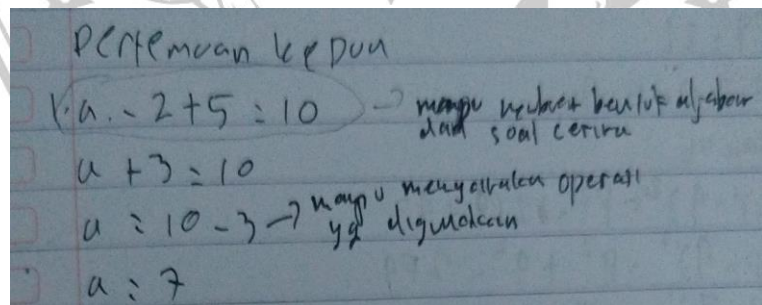 Pertemuan kedua
1. a - 2 + 5 = 10 → mampu membuat bentuk aljabar
dari soal cerita
a + 3 = 10
a = 10 - 3 → mampu menyatakan operasi
yg digunakan
a = 7